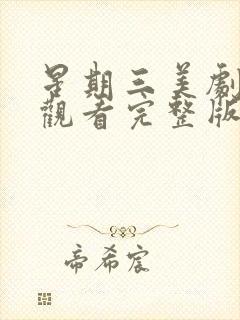 星期三美劇
觀看完整版
帝希宸